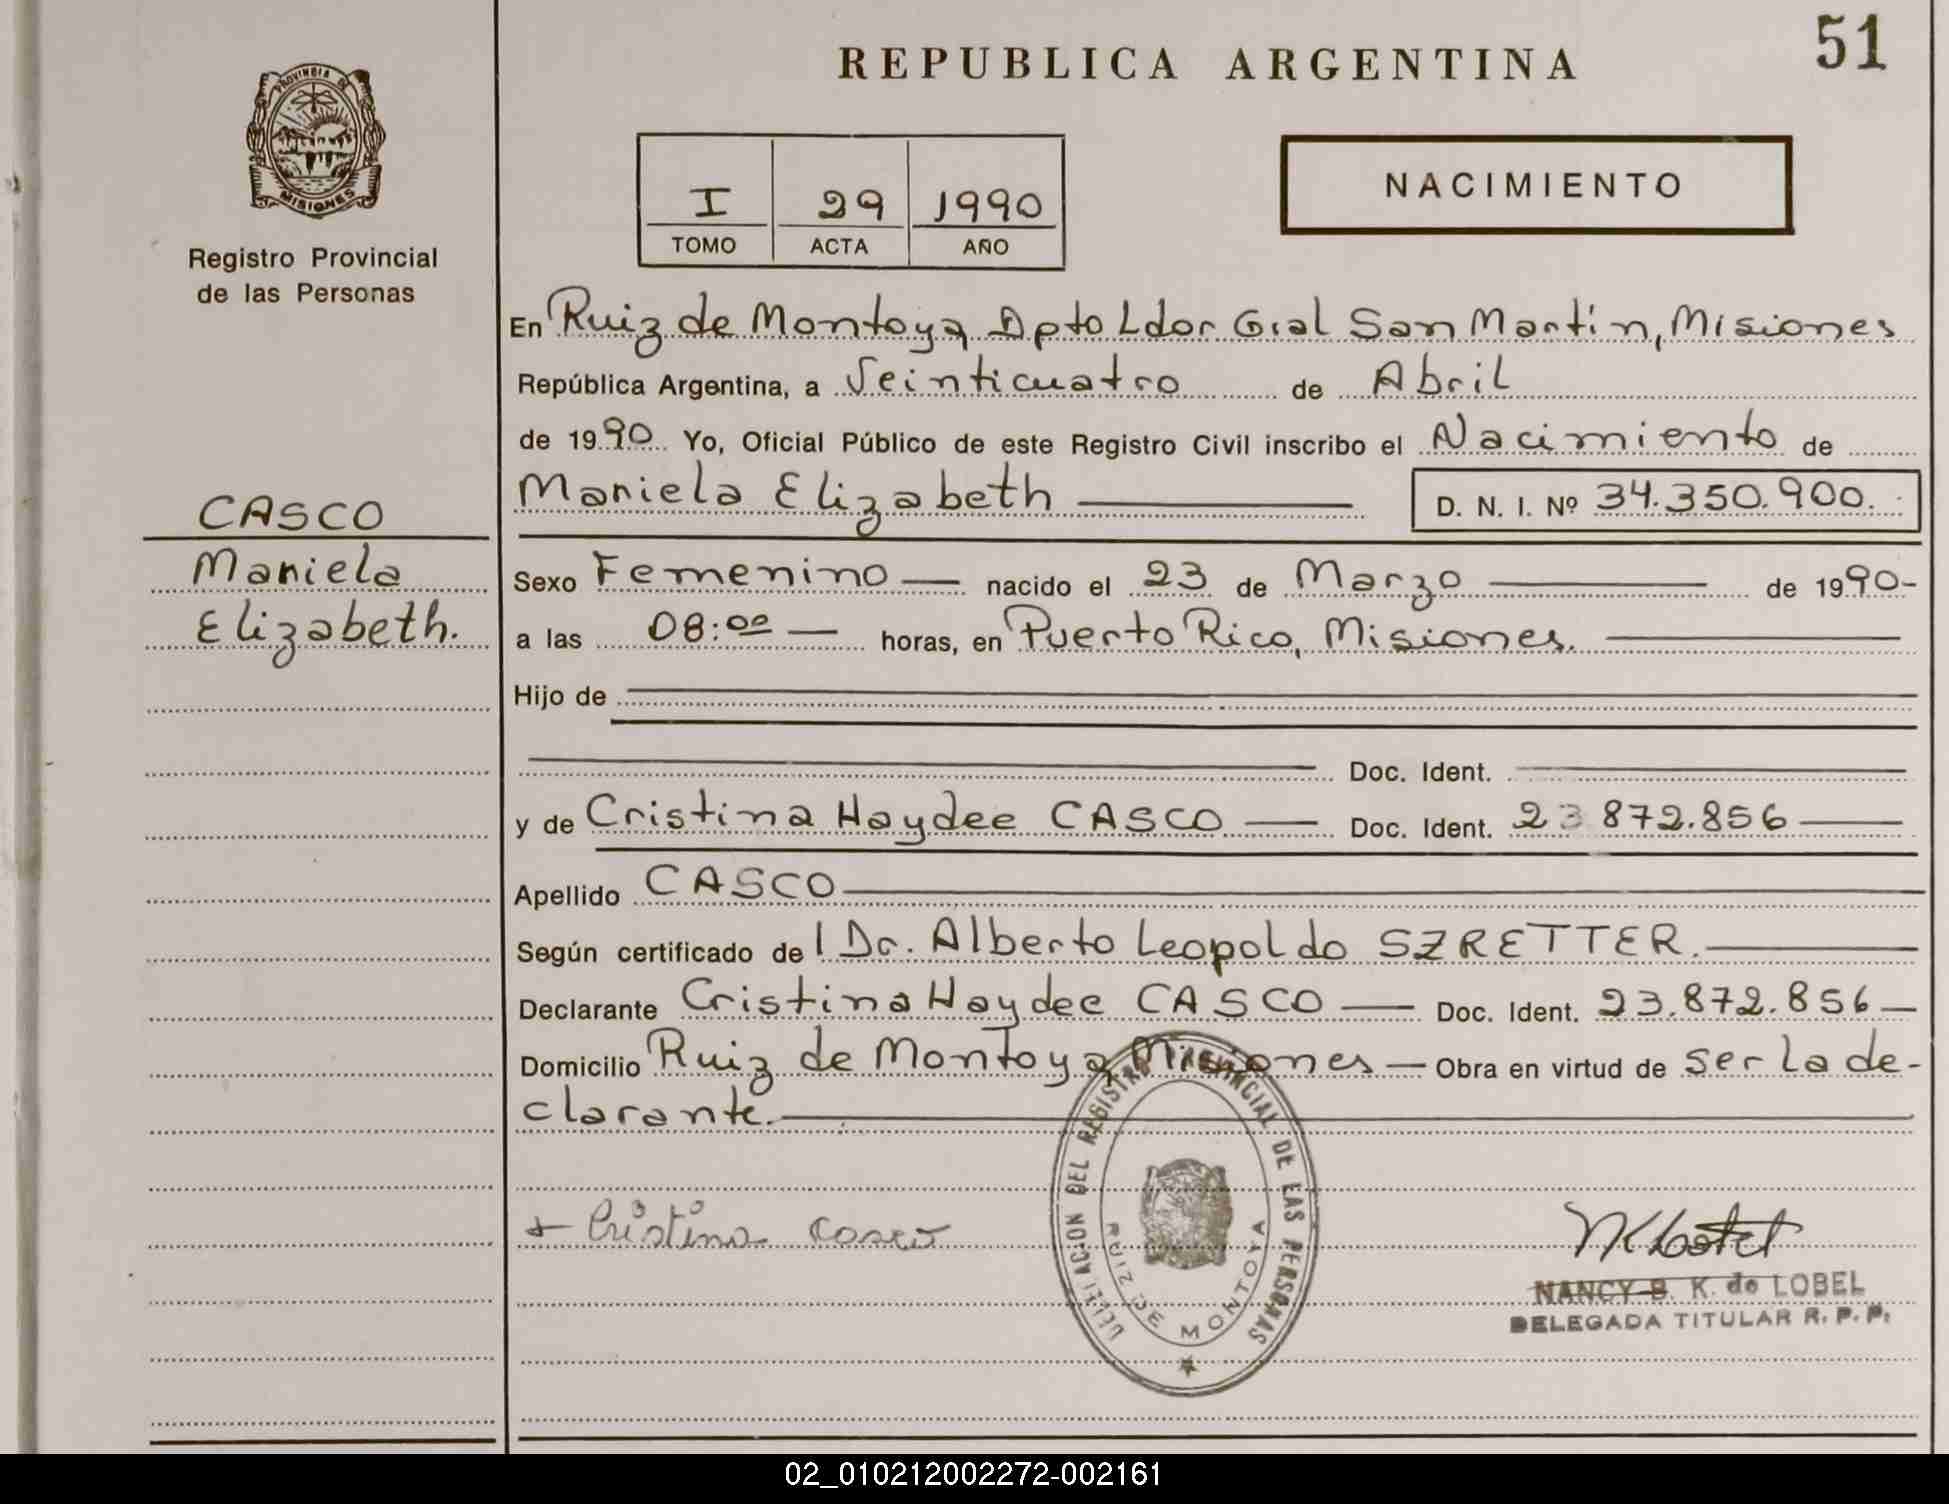 51
REPUBLICA ARGENTINA
PROVINCIA DE
MISIONES
Registro Provincial
de las Personas
I 29 1990
TOMO ACTA AÑO
NACIMIENTO
En Ruiz de Montoya, Dpto Ldor Gral San Martín, Misiones
República Argentina, a Veinticuatro de Abril
de 1990 Yo, Oficial Público de este Registro Civil inscribo el Nacimiento de
Mariela Elizabeth D. N. I. Nº 34.350.900.
CASCO
Mariela
Elizabeth.
Sexo Femenino nacido el 23 de Marzo de 1990-
a las 08:00 horas, en Puerto Rico, Misiones.
Hijo de
Doc. Ident.
y de Cristina Haydee CASCO Doc. Ident. 23 872.856
Apellido CASCO
Según certificado del Dr. Alberto Leopoldo SZRETTER.
Declarante Cristina Haydee CASCO Doc. Ident. 23.872.856
Domicilio Ruiz de Montoya, Misiones Obra en virtud de ser la de-
clarante.
+ Cristina Casco
DELEGACION DEL REGISTRO PROVINCIAL DE LAS PERSONAS
RUIZ DE MONTOYA
NANCY B. K. de LOBEL
DELEGADA TITULAR R. P. P.
02_010212002272-002161